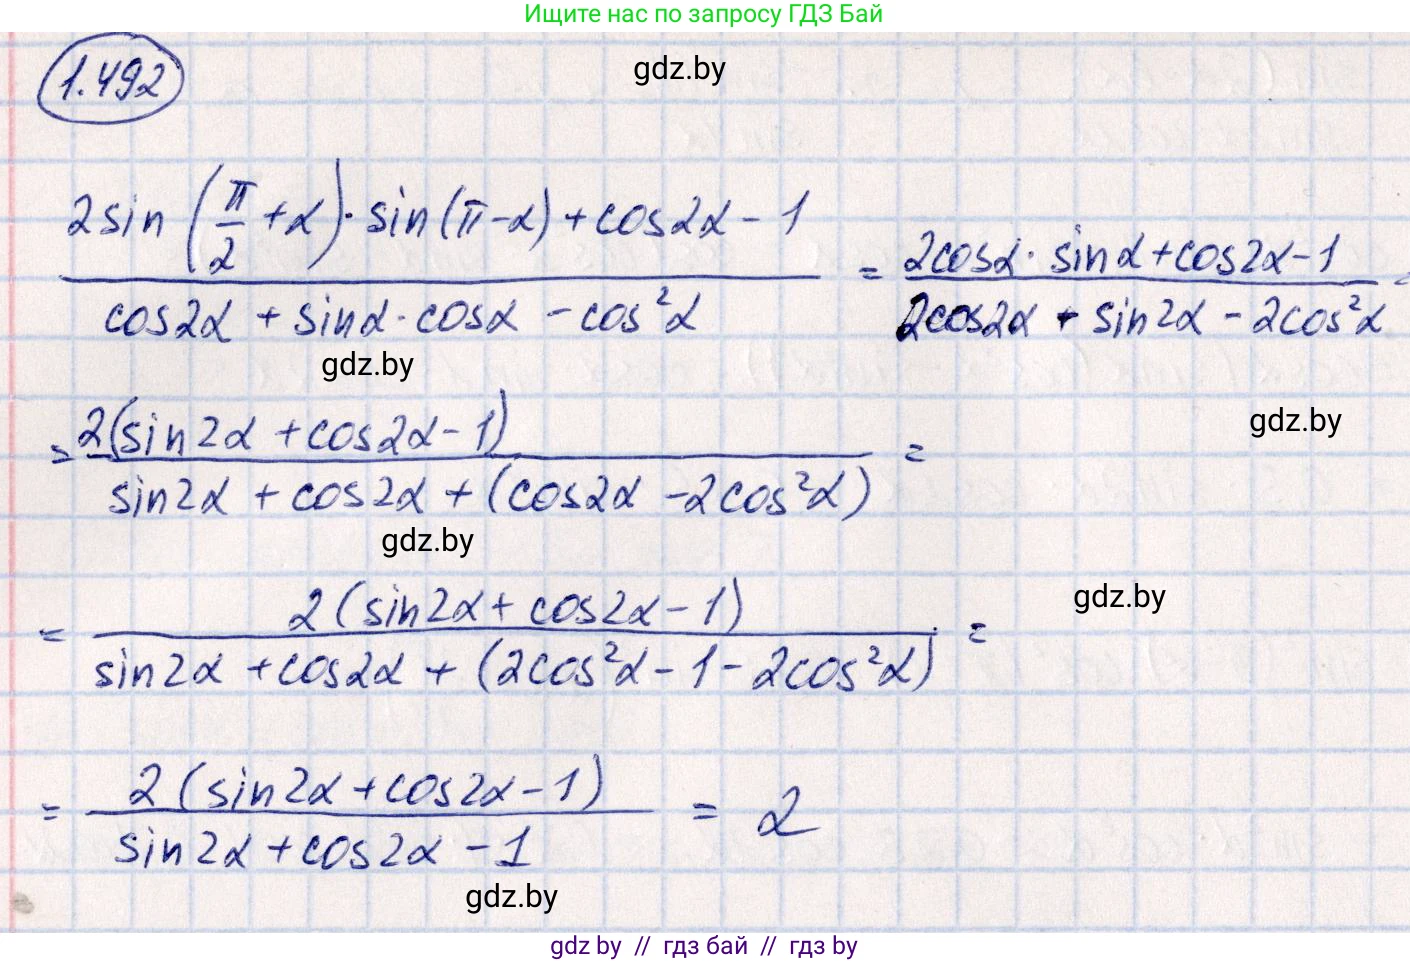 Ищите нас по запросу ГДЗ Бай
1.492
gdz.by
2sin(π/2 + α)·sin(π-α)+cos2α-1 / cos2α + sinα·cosα - cos²α = 2cosα·sinα+cos2α-1 / 2cos2α + sin2α - 2cos²α =
gdz.by
gdz.by
= 2(sin2α+cos2α-1) / sin2α + cos2α + (cos2α -2cos²α) =
gdz.by
gdz.by
= 2(sin2α+cos2α-1) / sin2α+cos2α + (2cos²α-1-2cos²α) =
= 2(sin2α+cos2α-1) / sin2α+cos2α-1 = 2
gdz.by
gdz by // гдз бай // гдз by